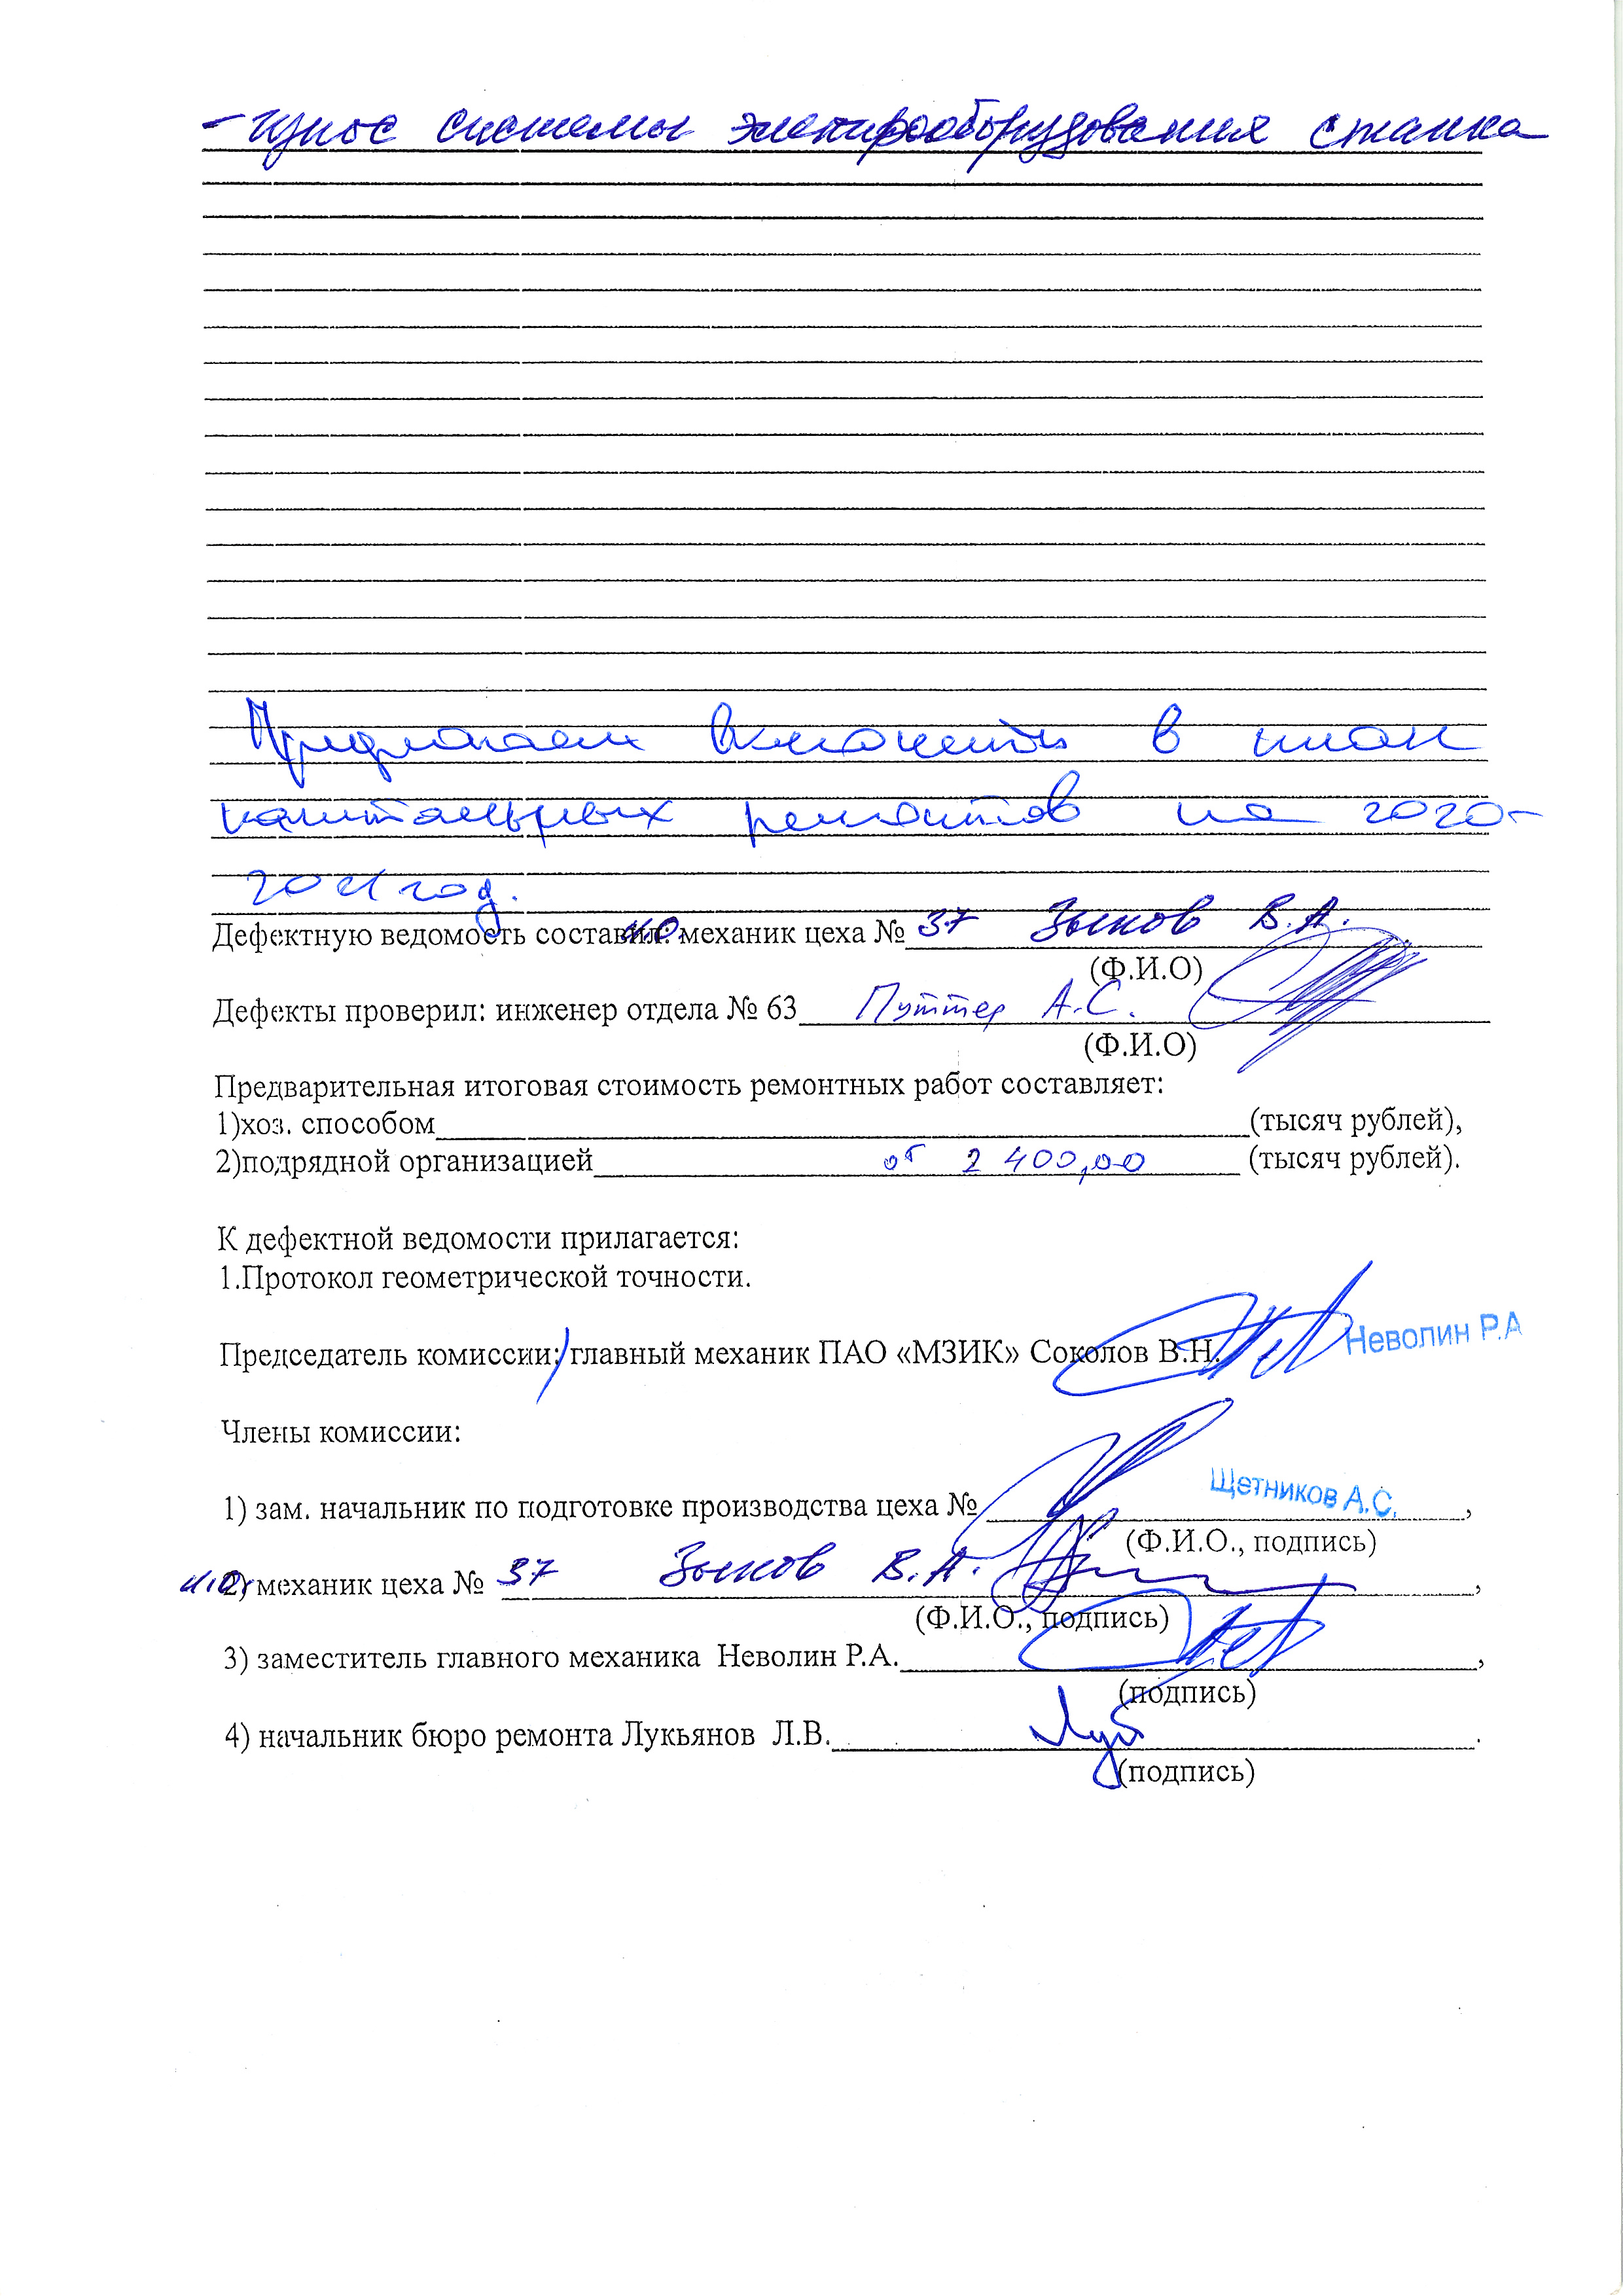 - износ системы электрооборудования станка
Предлагаем включить в план
капитальных ремонтов на 2020-
2021 год.
Дефектную ведомость составил: и.о. механик цеха № 37 Зыков В.А.
(Ф.И.О)
Дефекты проверил: инженер отдела № 63 Путтер А.С.
(Ф.И.О)
Предварительная итоговая стоимость ремонтных работ составляет:
1)хоз. способом (тысяч рублей),
2)подрядной организацией от 2 400,00 (тысяч рублей).
К дефектной ведомости прилагается:
1.Протокол геометрической точности.
Председатель комиссии: главный механик ПАО «МЗИК» Соколов В.Н. Неволин Р.А
Члены комиссии:
1) зам. начальник по подготовке производства цеха № Щетников А.С. ,
(Ф.И.О., подпись)
и.о. 2) механик цеха № 37 Зыков В.А. ,
(Ф.И.О., подпись)
3) заместитель главного механика Неволин Р.А. ,
(подпись)
4) начальник бюро ремонта Лукьянов Л.В. .
(подпись)